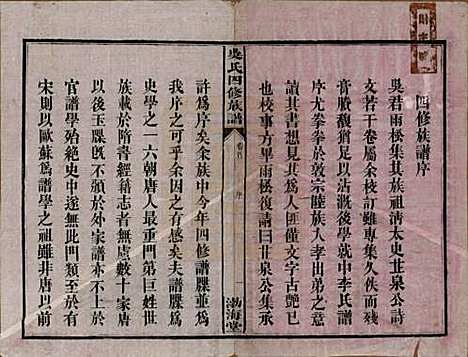 四修族譜序
吳君雨松集其族祖淸太史茁泉公詩
文若干卷屬余校訂雖專集久佚而殘
膏賸馥猶足以沾漑後學中李氏譜
序尤拳拳於敦宗睦族人孝出弟之意
想見其爲人匪僅文字古艷已
也校事方畢雨松復請曰茁泉公
吳氏四修族譜
卷首
序
一
渤海堂
許爲序矣余族中今年四修譜牒重爲
我序之可乎余因之有感矣夫譜牒爲
史學之一六朝唐人最重門第巨姓世
族載於隋書經籍志者無慮數十家唐
以後玉牒旣不頒於外家譜亦不上於
官譜學殆絕史中遂無此門類至於近
宋則以歐蘇爲譜學之祖雖非唐以前